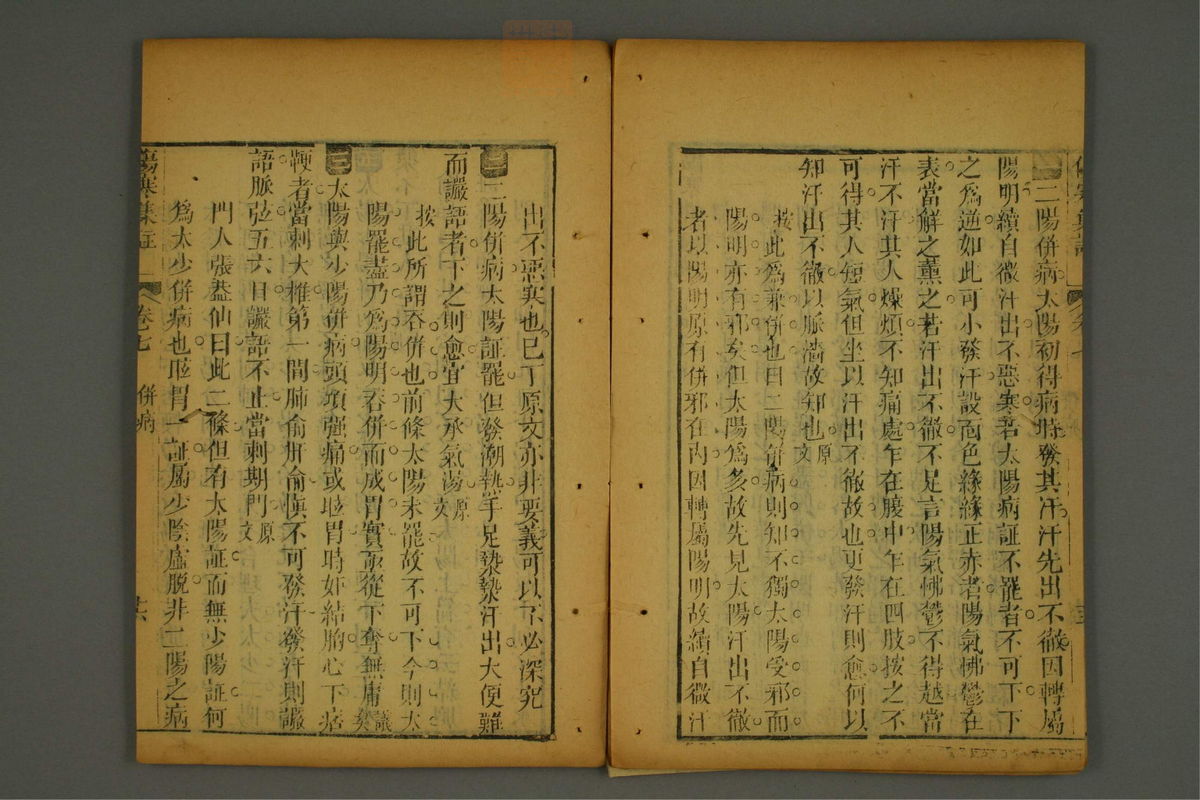 二陽併病太陽初得病時發其汗汗先出不徹因轉屬
陽明續自微汗出不惡寒若太陽病証不罷者不可下下
之爲逆如此可小發汗設面色緣緣正赤者陽氣怫鬱在
表當解之薰之若汗出不徹不足言陽氣怫鬱不得越當
汗不汗其人燥煩不知痛處乍在腹中乍在四肢按之不
可得其人短氣但坐以汗出不徹故也更發汗則愈何以
知汗出不徹以脈濇故知也原文
按此爲兼併也曰二陽併病則知不獨太陽受邪而
陽明亦有邪矣但太陽爲多故先見太陽汗出不徹
者以陽明原有併邪在內因轉屬陽明故續自微汗
出不惡寒也已丁原文亦非要義可以不必深究
二 二陽併病太陽証罷但發潮熱手足漐漐汗出大便難
而讝語者下之則愈宜大承氣湯原文
按此所謂吞併也前條太陽未罷故不可下今則太
陽罷盡乃爲陽明吞併而成胃實故從下奪無庸議矣
三 太陽與少陽併病頭項强痛或眩冒時如結胸心下痞
鞕者當刺大椎第一間肺俞肝俞愼不可發汗發汗則讝
語脈弦五六日讝語不止當刺期門原文
門人張蓋仙曰此二條但有太陽証而無少陽証何
爲太少併病也眩冒一証屬少陰虛脫非二陽之病
傷寒集註 卷七 併病